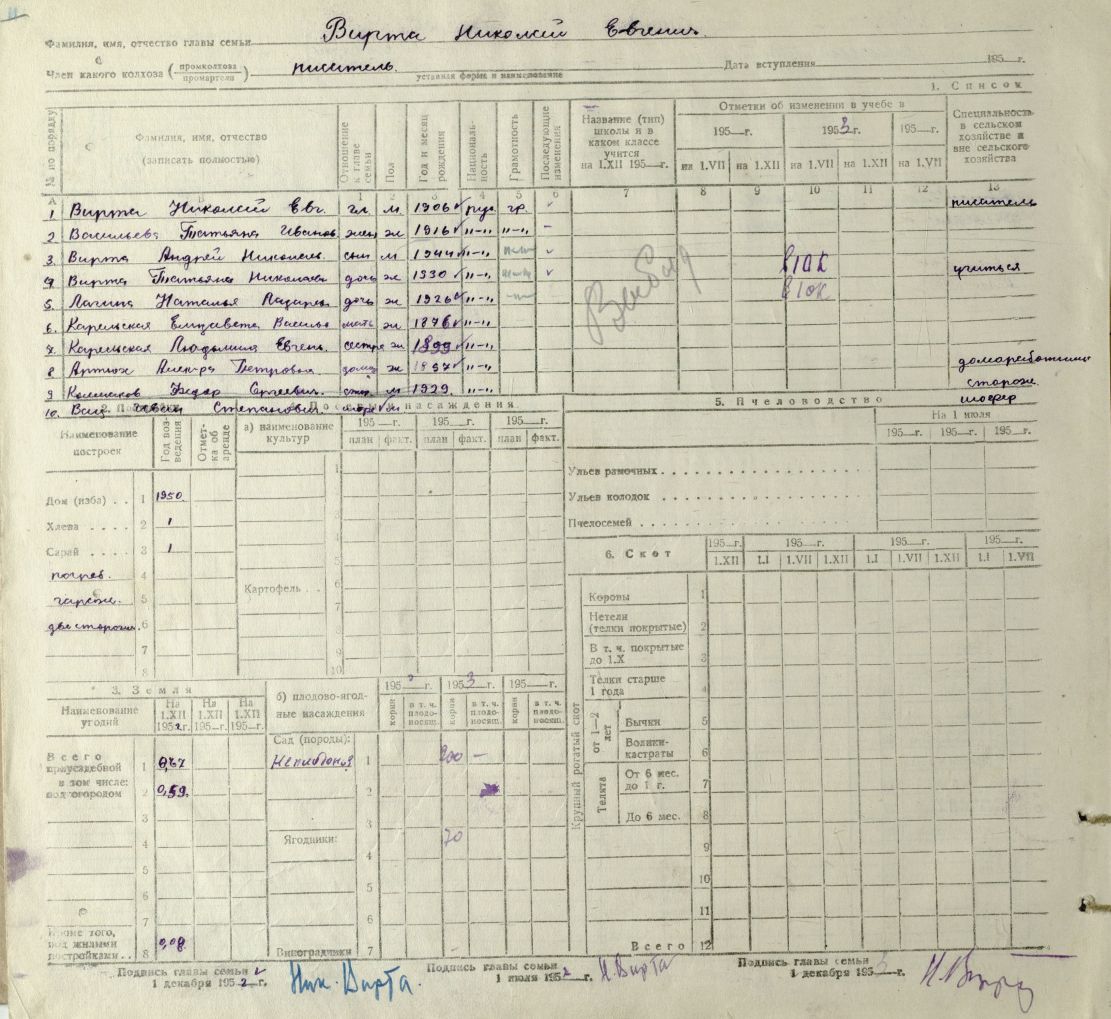 11
Фамилия, имя, отчество главы семьи Вирта Николай Евгеньев.
Член какого колхоза (промколхоза / промартели) писатель. Дата вступления 195 г.
уставная форма и наименование
1. Список
№ по порядку
Фамилия, имя, отчество (записать полностью)
Отношение к главе семьи
Пол
Год и месяц рождения
Националь-ность
Грамотность
Последующие изменения
Название (тип) школы и в каком классе учится на 1.XII 195 г.
Отметки об изменении в учебе в
195 г. 1953 г. 195 г.
на 1.VII на 1.XII на 1.VII на 1.XII на 1.VII
Специальность в сельском хозяйстве и вне сельского хозяйства
А 1 2 3 4 5 6 7 8 9 10 11 12 13
1 Вирта Николай Евг. гл. м. 1906 рус. гр. писатель
2 Васильева Татьяна Иванов. жена ж 1916 "-" "-" -
3. Вирта Андрей Николаев. сын м 1944 "-"
4 Вирта Татьяна Николаева дочь ж 1930 "-" в 10 к учиться
5. Лагина Наталья Лазарев. дочь ж 1926 "-" в 10 к
6. Карельская Елизавета Василье мать ж 1876 "-"
7. Карельская Людмила Евгень. сестра ж 1899 "-"
8 Петровна ж 1897 "-" домработница
9 Федор Сергеевич. м 1929. "-" сторож.
10. Степанович шофер
Выбыл
Наименование построек
Год воз-ведения
Отмет-ка об аренде
насаждения
а) наименование культур
195 г. 195 г. 195 г.
план факт. план факт. план факт.
5. Пчеловодство
На 1 июля
195 г. 195 г. 195 г.
Ульев рамочных
Ульев колодок
Пчелосемей
Дом (изба) . . 1 1950.
Хлева . . . . 2 1
Сарай . . . . 3 1
погреб. 4
гараж. 5
две сторожки. 6
7
8
1
3
Картофель . . 6
7
9
10
6. Скот
195 г. 195 г. 195 г. 195 г.
1.XII 1.I 1.VII 1.XII 1.I 1.VII 1.XII 1.I 1.VII
Крупный рогатый скот
Коровы 1
Нетели (телки покрытые) 2
В т. ч. покрытые до 1.X 3
Телки старше 1 года 4
от 1—2 лет
Бычки 5
Волики-кастраты 6
Телята
От 6 мес. до 1 г. 7
До 6 мес. 8
9
10
11
Всего 12
3. Земля
Наименование угодий
На 1.XII 1952 г.
На 1.XII 195 г.
На 1.XII 195 г.
Всего приусадебной 1 0,67
в том числе: под огородом 2 0,59.
3
4
5
6
7
Кроме того, под жилыми постройками . . 8 0,08.
б) плодово-ягод-ные насаждения
195 г. 1953 г. 195 г.
корни в т. ч. плодо-носящ. корни в т. ч. плодо-носящ. корни в т. ч. плодо-носящ.
Сад (породы):
1 200 —
2
3
Ягодники: 70
4
5
6
Виноградники 7
Подпись главы семьи 1 декабря 1952 г. Ник. Вирта.
Подпись главы семьи 1 июля 195 г. Н. Вирта
Подпись главы семьи 1 декабря 195 г. Н. Вирта